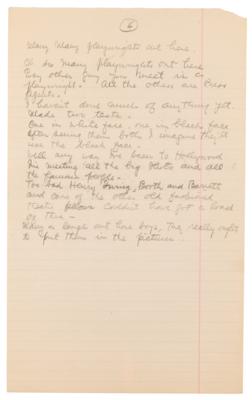 6
Many Many playwrights out here.
Oh so Many playwrights out here
Every other guy you meet is a
playwright. All the others are Press
Agents.
I haven't done much of anything yet.
Made two tests.
One in white face, one in black face
After seeing them both I imagine they'll
use the black face.
Well any way I've been to Hollywood
I'm meeting all the big shots and all
the famous people.
Too bad Henry Irving, Booth and Barrett
and some of the other old fashioned
fellows couldn't have got a load
of this —
What a laugh out here boys, They really ought
to put them in the pictures.